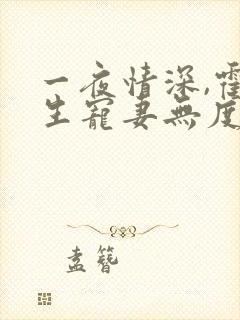 一夜情深,霍
生寵妻無度
孟簪